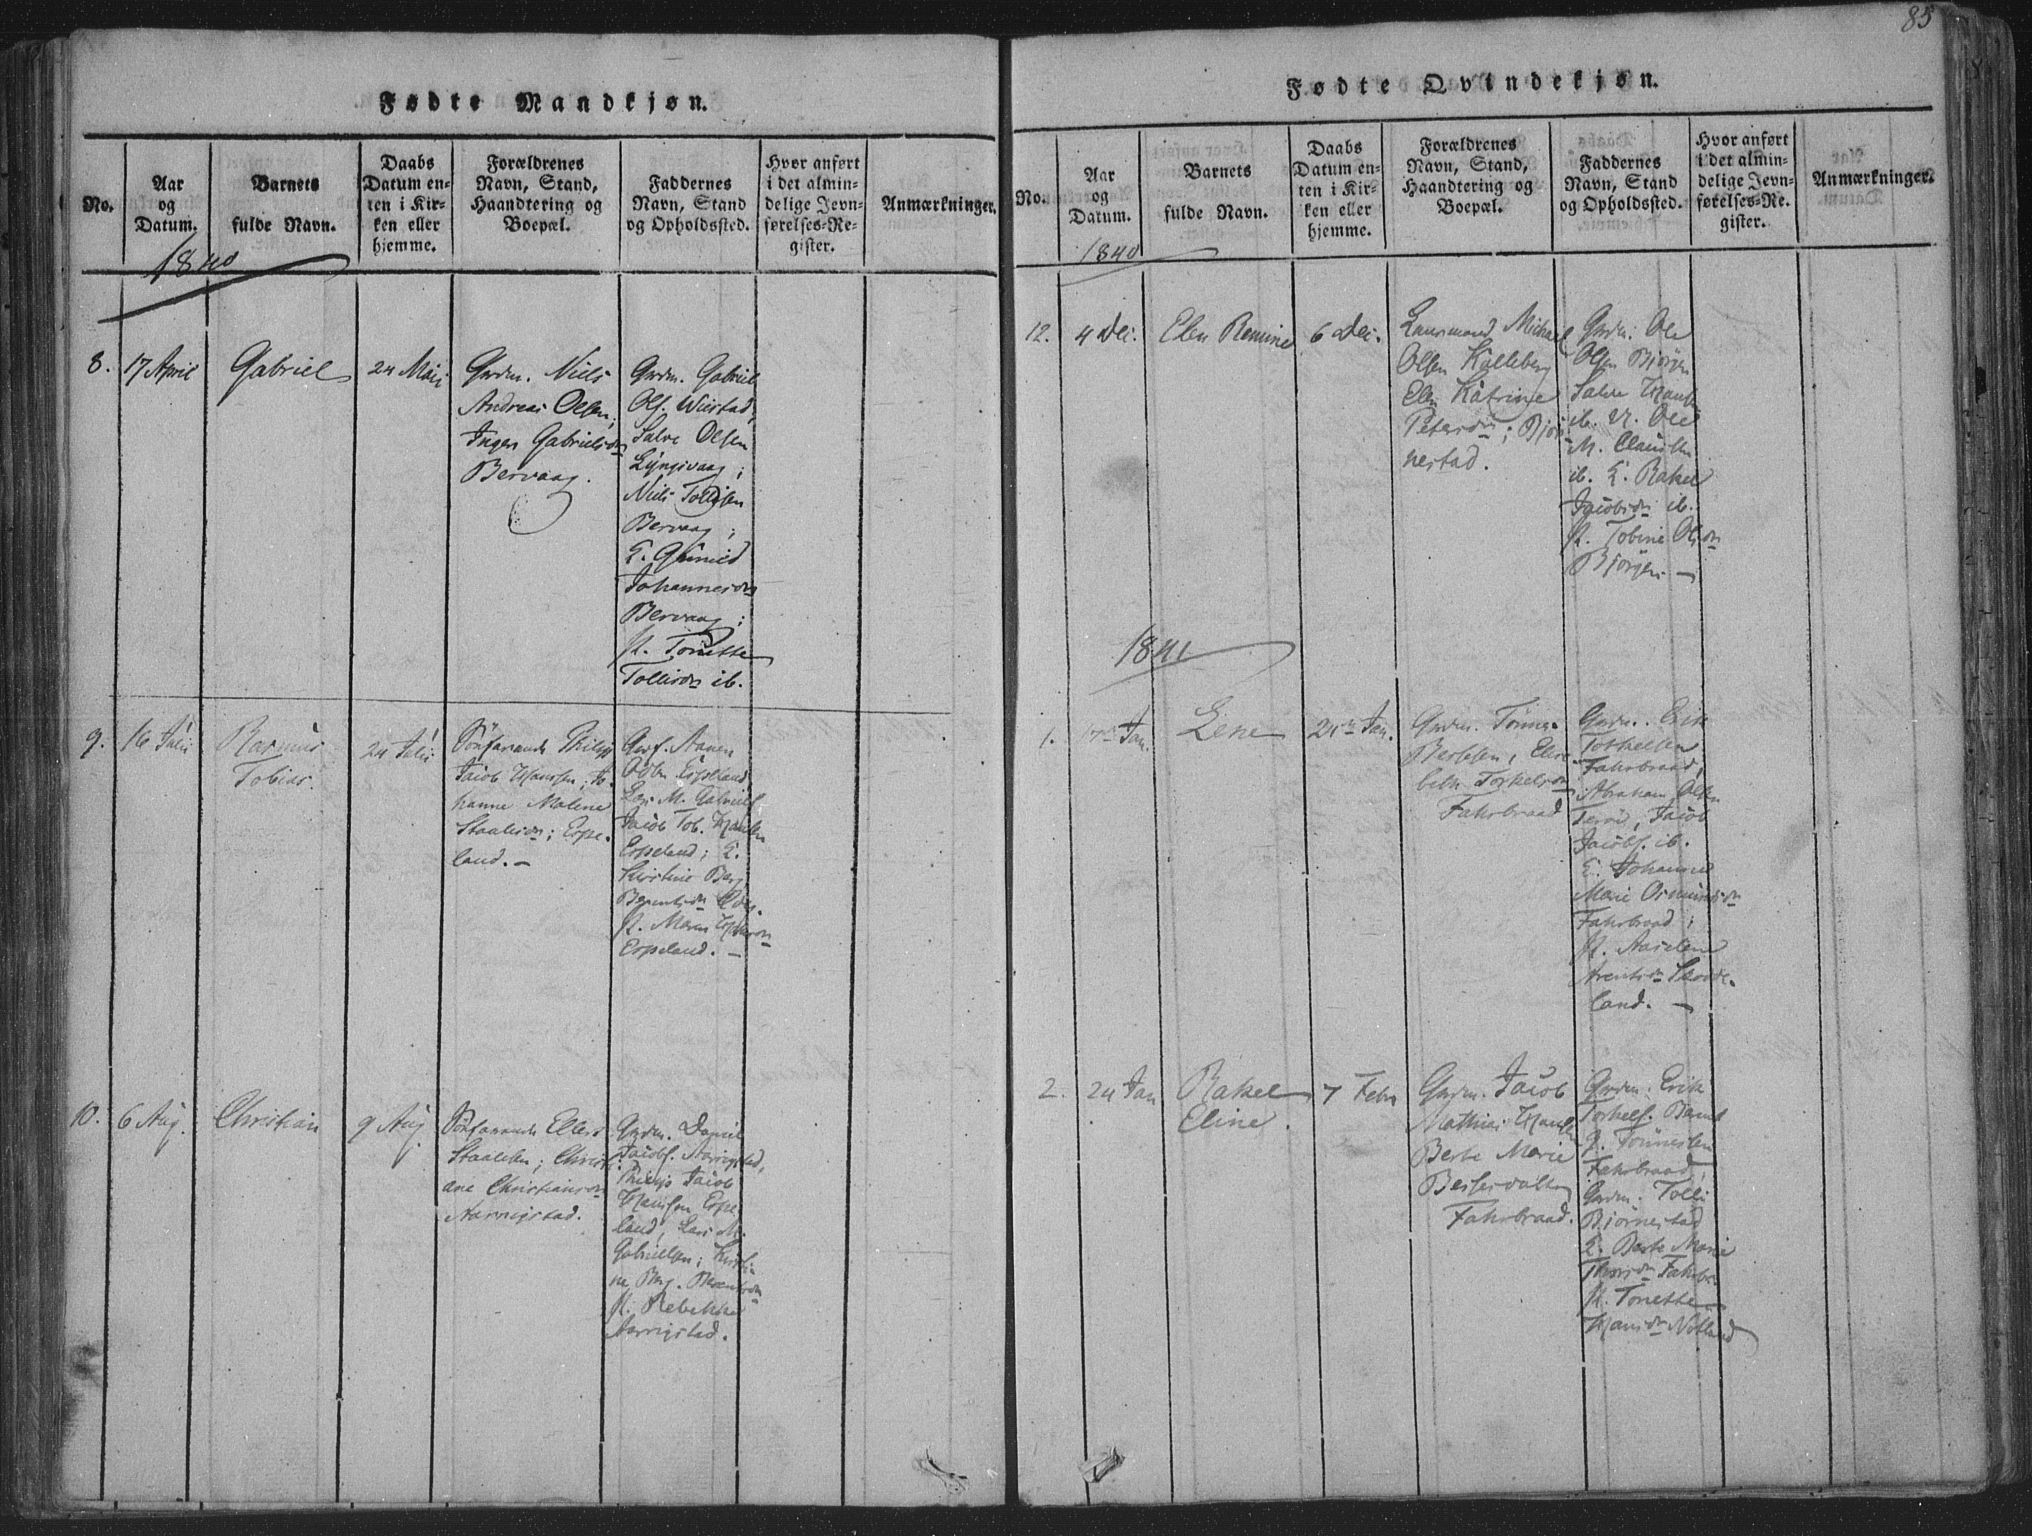 Fødte Mandkjøn.
No.
Aar
og
Datum.
Barnets
fulde Navn.
Daabs
Datum en-
ten i Kir-
ken eller
hjemme.
Forældrenes
Navn, Stand,
Haandtering og
Boepæl.
Faddernes
Navn, Stand
og Opholdssted.
Hvor anført
i det almin-
delige Jevn-
førelses-Re-
gister.
Anmærkninger.
1840
8.
17 April
Gabriel
24 Mai
Grdm. Niels
Andreas Olsen,
Inger Gabrielsdn
Bervaag.
Grdm. Gabriel
Ols.
Salve Olsen
Lyngsvaag;
Niels Tollisen
Bervaag;
K. Gunild
Johannesdn
Bervaag;
P. Tonette
Tollisdn ib.
9.
16 Juli
Rasmus
Tobias.
24 Juli
Philip
Jacob Hansen; Jo-
hanne Malene
Staalesdn; Espe-
land. –
Espeland
Lars M. Gabriels
Jacob Tob. Hansen
Espeland; K.
Kirstine Berg
Berentsdn
P. Maren
Espeland. –
10.
6 Aug.
Christian
9 Aug
Staalesen; Christi-
ane Christiansdn
Aarrigstad.
Grdm. Daniel
Jacobs. Aarrigstad,
Philip Jacob
Hansen Espe-
land, Lars M.
Gabrielsen; Kirsti-
ne Berg. Berentsdn
P. Rebekke
Aarrigstad.
85
Fødte Qvindekjøn.
No.
Aar
og
Datum.
Barnets
fulde Navn.
Daabs
Datum en-
ten i Kir-
ken eller
hjemme.
Forældrenes
Navn, Stand,
Haandtering og
Boepæl.
Faddernes
Navn, Stand
og Opholdssted.
Hvor anført
i det almin-
delige Jevn-
førelses-Re-
gister.
Anmærkninger.
1840
12.
4 Dec.
Elen Remine
6 Dec.
Michael
Olsen Kalleberg
Elen Katrine
Petersdn; Bjør-
nestad.
Grdm. Ole
Olsen Bjørgen
Salve Hans
ib. U. Ole
M. Clausen
ib. K. Rakel
Jacobsdn ib.
P. Tobine Olsdn
Bjørgen –
1841
1.
17de Jan.
Lene
24de Jan.
Grdm. Tønnes
Berntsen, Elisa-
beth Torkelsdn
Fahrbraad
Grdm. Erik
Torkelsen
Fahrbraad,
Abraham Olsen
Terøe, Jacob
Jacobs. ib.
K. Johanne
Marie Osmundsdn
Fahrbraad;
P. Aaselen
Arentsdn Skorde-
land. –
2.
24 Jan
Rakel
Eline.
7 Febr
Grdm. Jacob
Mathias Hansen
Berte Marie
Fahrbraad.
Grdm. Erik
Torkels. Bernt
Tønnessen
Fahrbraad
Grdm. Tolli
Bjørnestad
K. Berte Marie
P. Tonette
Hansdn Nøtland